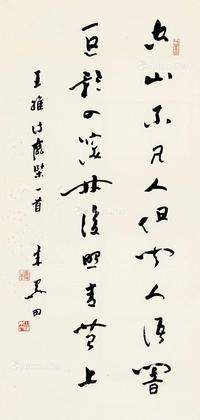 空山不見人但聞人語響
返影入深林復照青苔上
王維詩鹿柴一首